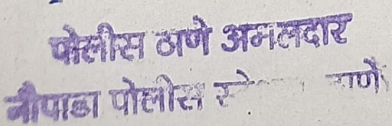 पोलीस ठाणे अमलदार
नौपाडा पोलीस स्टे ठाणे